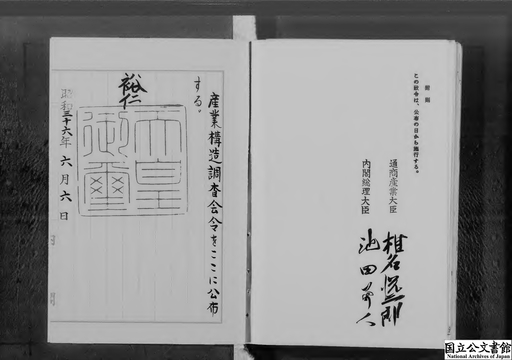 附則
この政令は、公布の日から施行する。
通商産業大臣 椎名悦三郎
内閣総理大臣 池田勇人
産業構造調査会令をここに公布
する。
裕仁
天皇
御璽
昭和三十六年六月六日
国立公文書館
National Archives of Japan